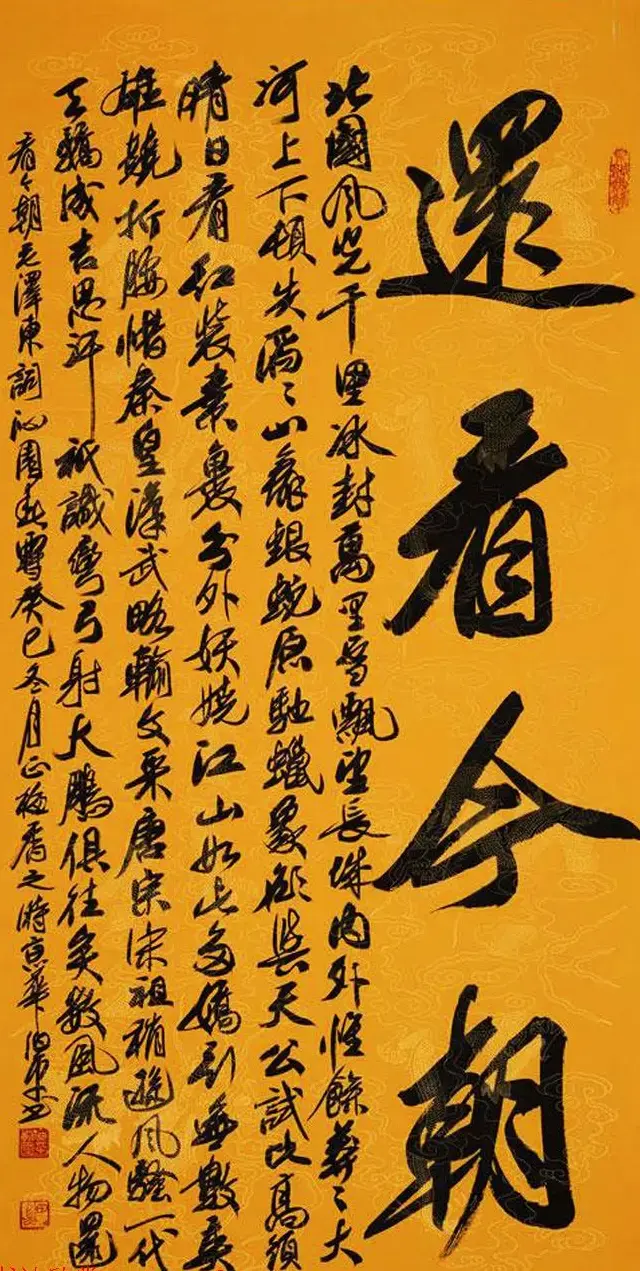 還看今朝
北國風光千里冰封萬里雪飄望長城內外惟餘莽〻大
河上下頓失滔〻山舞銀蛇原馳蠟象欲與天公試比高須
晴日看紅裝素裹分外妖嬈江山如此多嬌引無數英
雄競折腰惜秦皇漢武略輸文采唐宗宋祖稍遜風騷一代
天驕成吉思汗祇識彎弓射大鵰俱往矣數風流人物還
看今朝毛澤東詞沁園春雪癸巳冬月正梅香之時京華